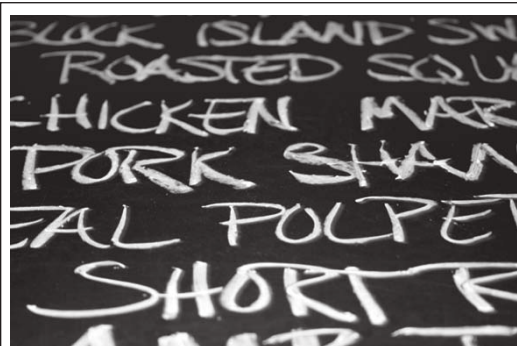 BLOCK ISLAND SW
ROASTED SQU
CHICKEN MAR
PORK SHAN
EAL POLPET
SHORT R